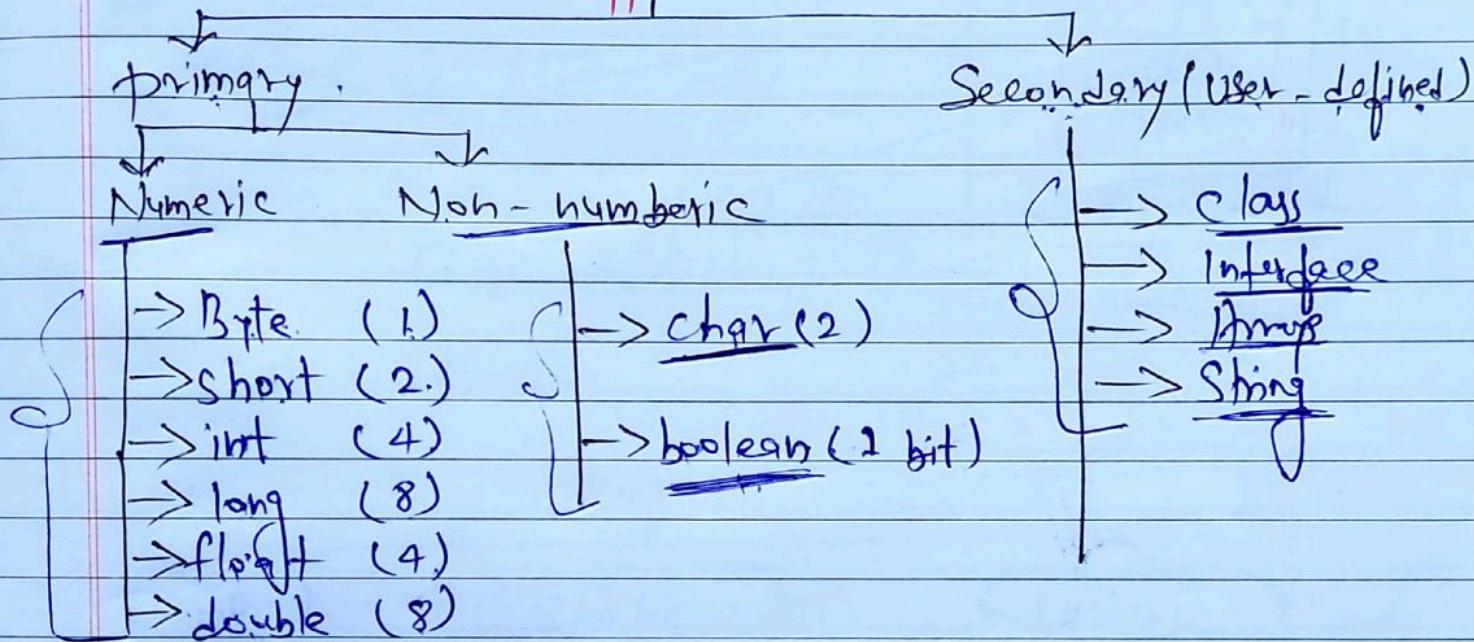 primary.
Secondary (User-defined)
Numeric
Non-numberic
Byte (1)
short (2)
int (4)
long (8)
float (4)
double (8)
char (2)
boolean (1 bit)
class
Interface
Arrays
String